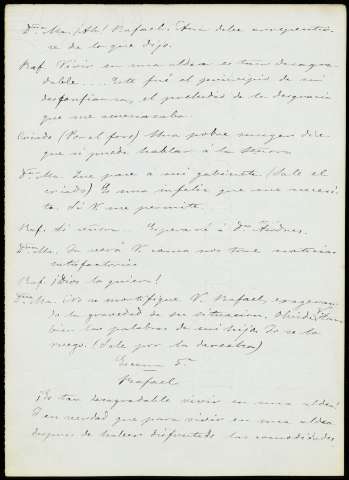 Dña Ma. ¡Ah! Rafael. Ana debe arrepentir-
se de lo que dijo.
Raf. Vivir en una aldea es tan desagra-
dable.... Este fué el principio de mi
desconfianza, el preludio de la desgracia
que me amenazaba.
Criado (Por el foro) Una pobre muger dice
que si puede hablar á la Señora
Dña Ma. Que pase á mi gabinete (Sale el
criado) Es una infeliz que me necesi-
ta. Si V. me permite...
Raf. Si señora. Esperaré á Dn. Andres.
Dña Ma. Ya verá V. como nos trae noticias
satisfactorias
Raf. ¡Dios lo quiera!
Dña Ma. ¡No se mortifique V. Rafael, exageran-
do la gravedad de su situacion. Olvide tam-
bien las palabras de mi hija. Yo se lo
ruego. (Sale por la derecha)
Escena 5ª
Rafael
¡Es tan desagradable vivir en una aldea!
Y en verdad que para vivir en una aldea
despues de haber disfrutado las comodidades